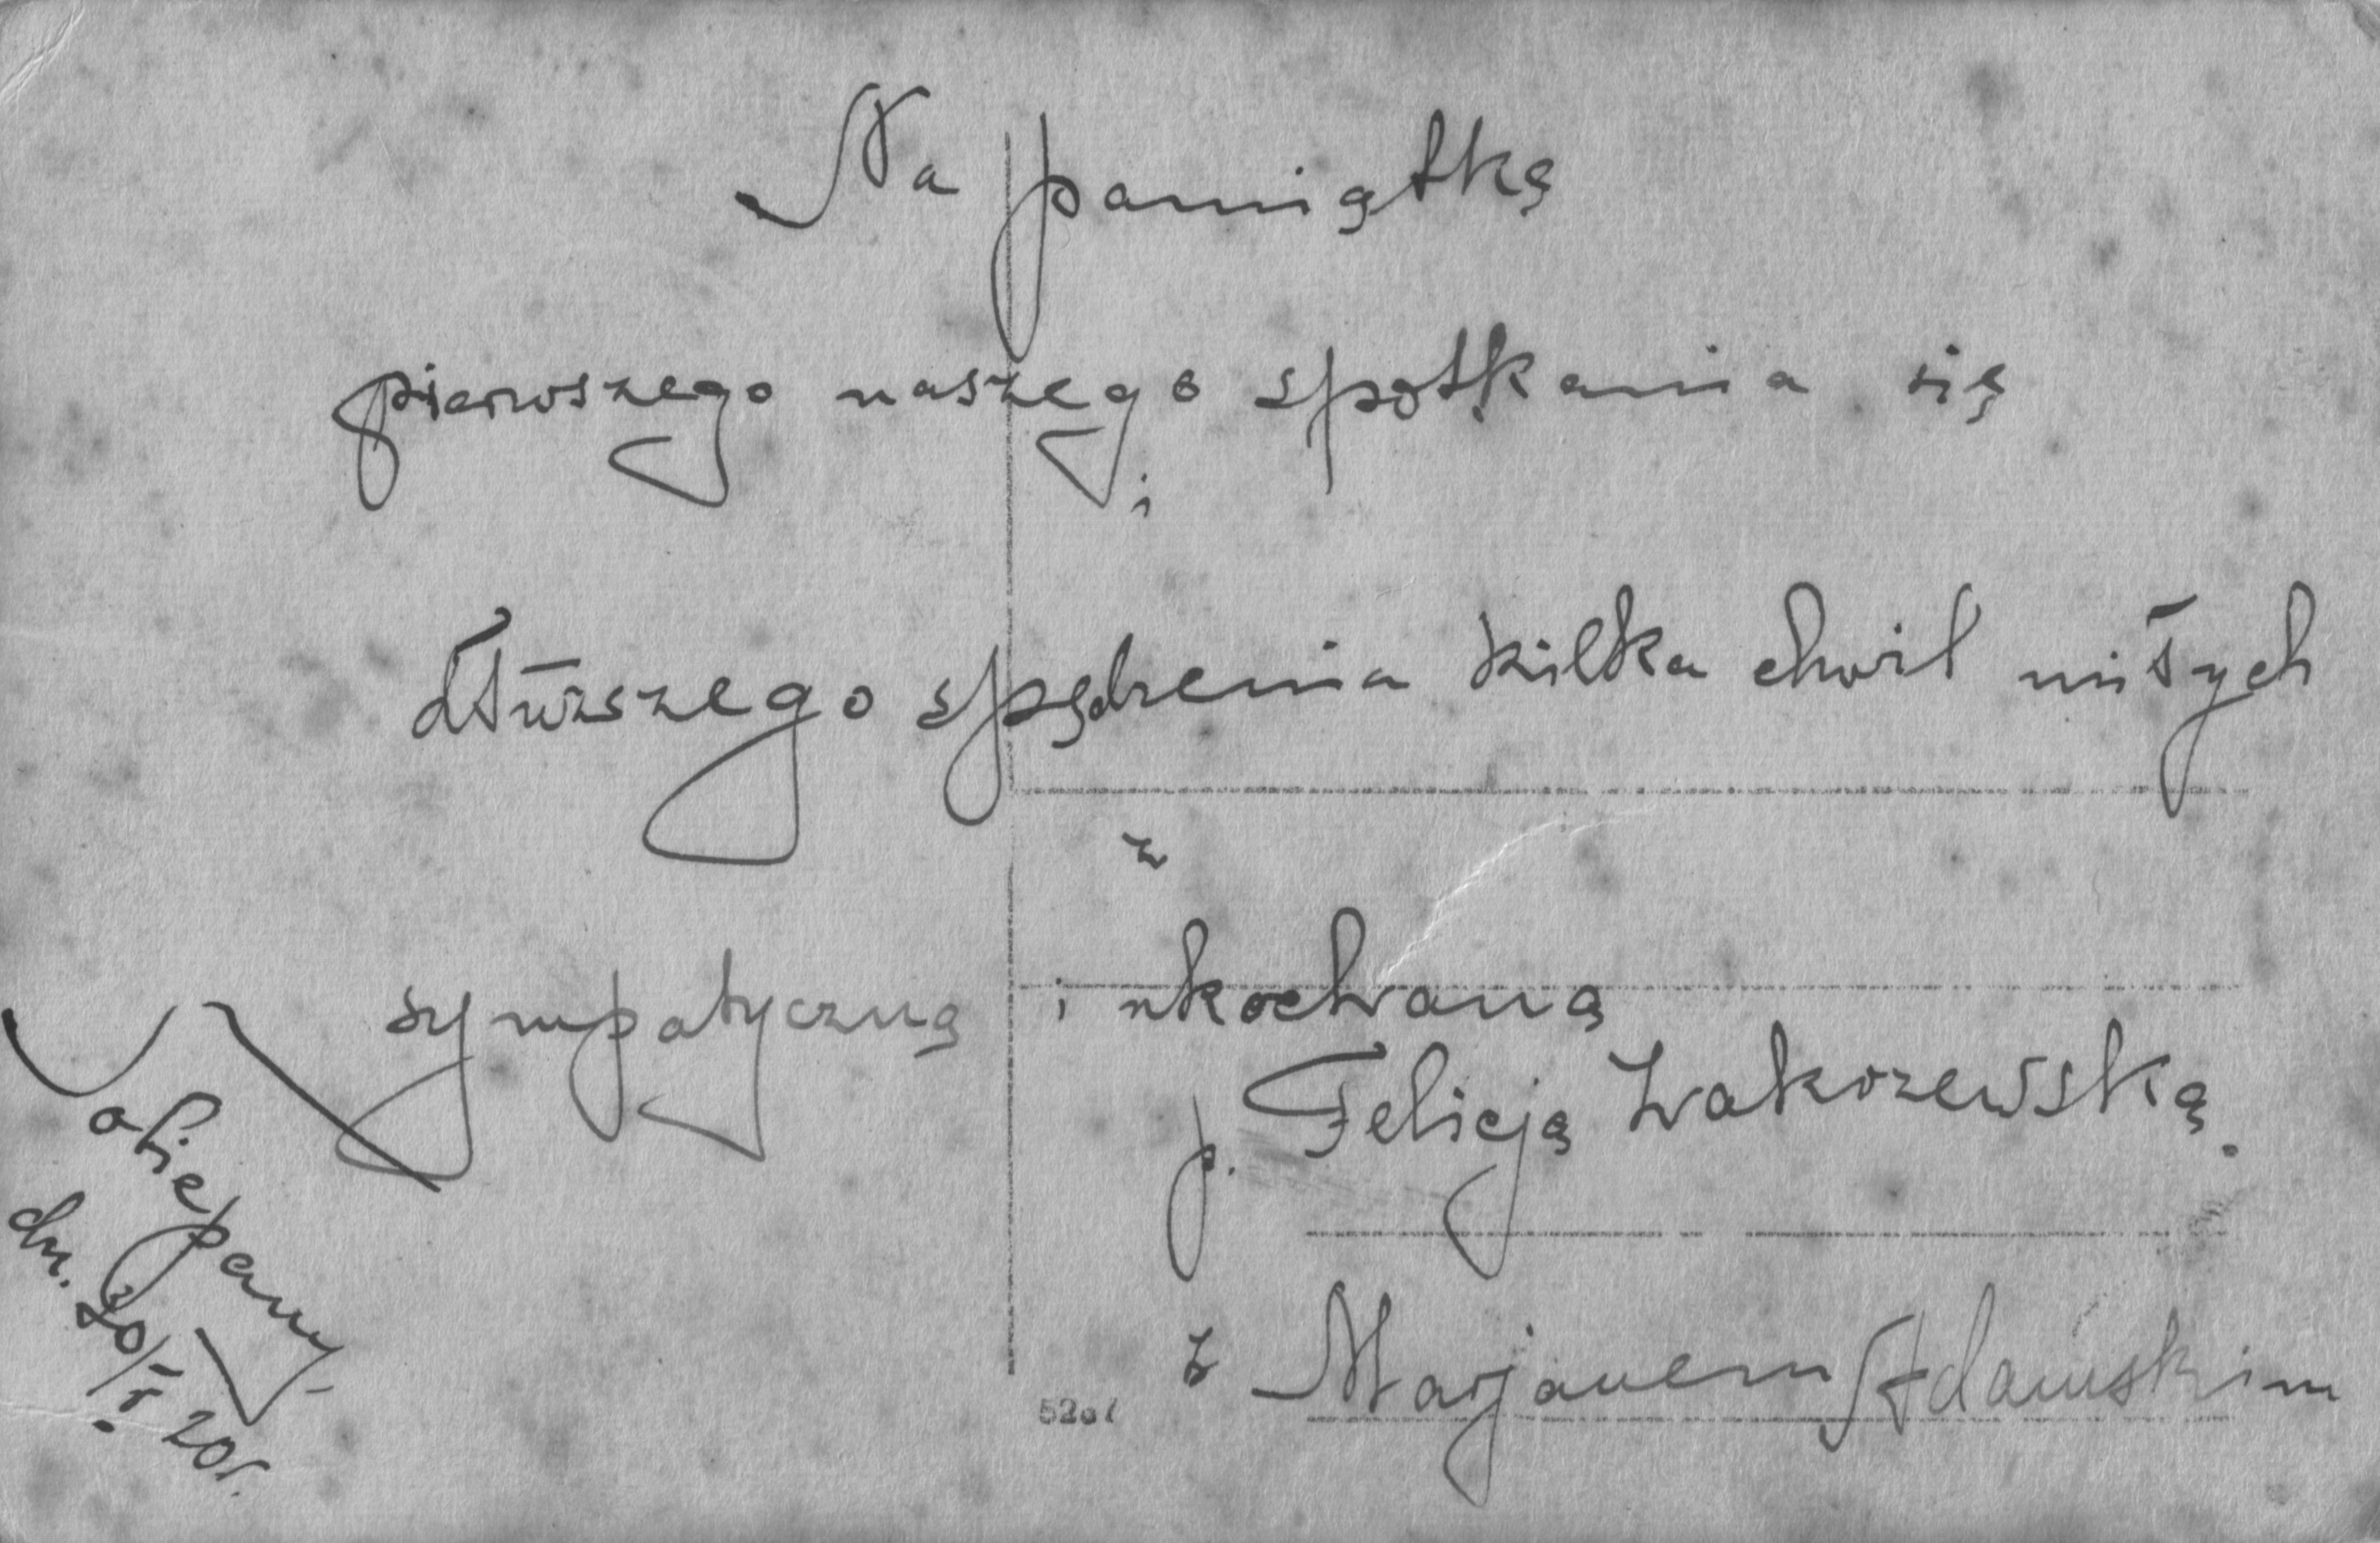 Na pamiątkę
pierwszego naszego spotkania się
i
dłuższego spędzenia kilka chwil miłych
z
sympatyczną i ukochaną
p. Felicją Zakrzewską.
z Marjanem Adamskim
dn. 20/I 20r.